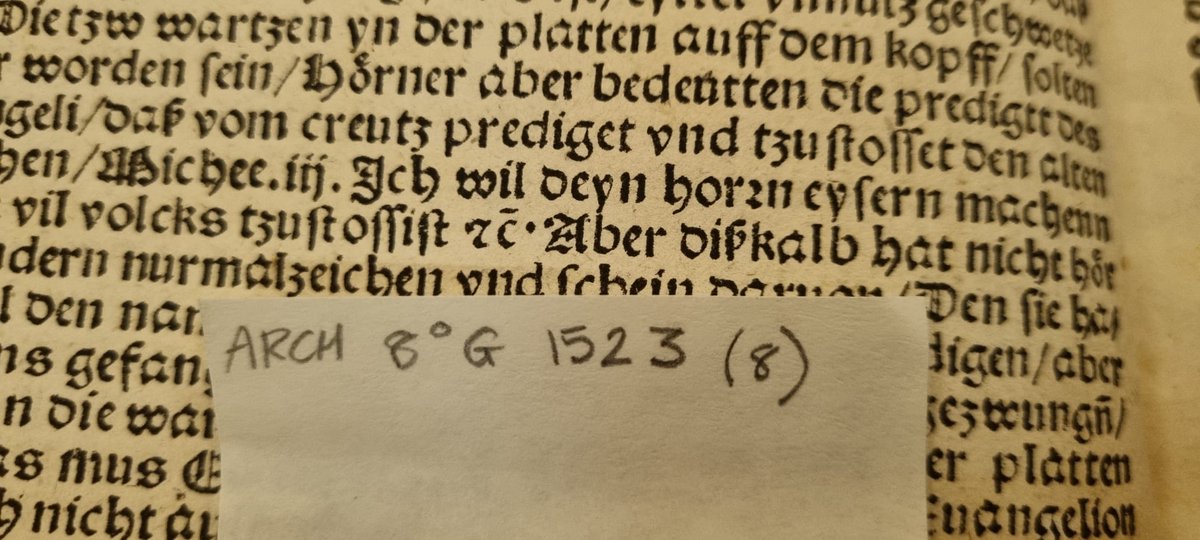 vnnutz geschwetze
Die tzw wartzen yn der platten auff dem kopff/ solten
worden sein/ Hörner aber bedeutten die predigtt des
geli/ daß vom creutz prediget vnd tzu stosset den alten
hen/ Michee. iij. Ich wil deyn horꝛn eysern machenn
vil volcks tzustossist ⁊c̄. Aber diß kalb hat nicht hör
dern nur malzeichen vnd schein daruon/ Den sie ha
l den nan
ARCH 8° G 1523 (8)
ns gefang digen/ aber
n die war gezwungñ/
as mus er platten
h nicht au Euangelion